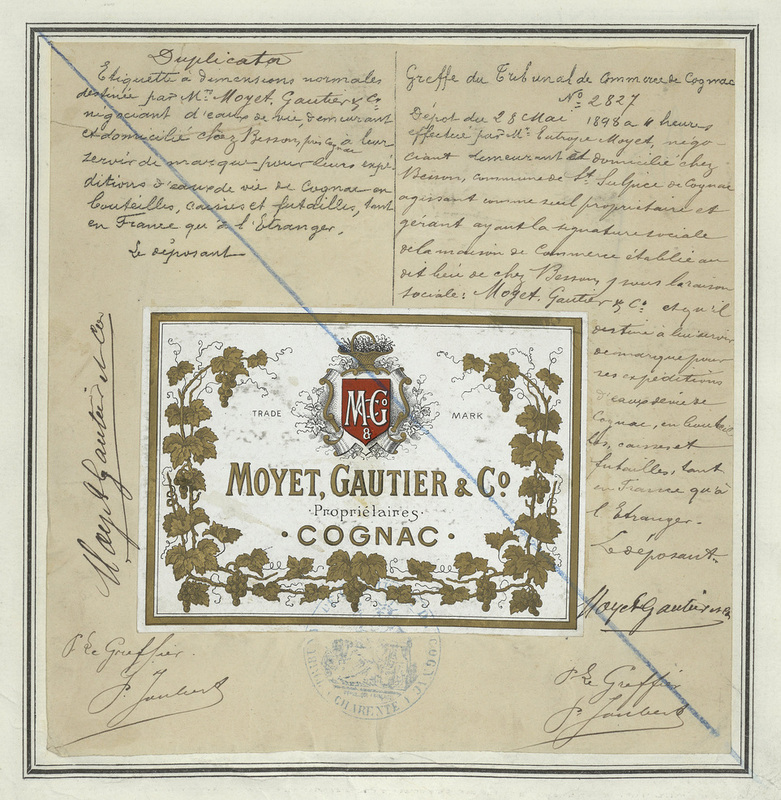 Duplicata
Etiquette à dimensions normales
destinée par Mrs Moyet, Gautier & Co
négociant d'eaux de vie, demeurant
et domicilié chez Besson, près Cognac à leur
servir de marque pour leurs expé-
ditions d'eaux de vie de Cognac en
bouteilles, caisses et futailles, tant
en France qu'à l'Etranger.
Le déposant
Moyet Gautier et Co
Greffe du Tribunal de Commerce de Cognac
No 2827
Dépôt du 28 Mai 1898 à 4 heures
effectué par Mr Eutrope Moyet, négo-
ciant demeurant et domicilié chez
Besson, commune de St Sulpice de Cognac
agissant comme seul propriétaire et
gérant ayant la signature sociale
de la maison de Commerce établie au
dit lieu de chez Besson, sous la raison
sociale: Moyet, Gautier & Co et qu'il
destine à lui servir
de marque pour
ses expéditions
d'eaux de vie de
Cognac, en bouteil-
les, caisses et
futailles, tant
en France qu'à
l'Etranger.
Le déposant
Moyet Gautier et Co
M G Co
&
TRADE MARK
MOYET, GAUTIER & Co
·Propriétaires·
·COGNAC·
Pr Le Greffier.
P. Joubert
Pr Le Greffier
P. Joubert
CHARENTE